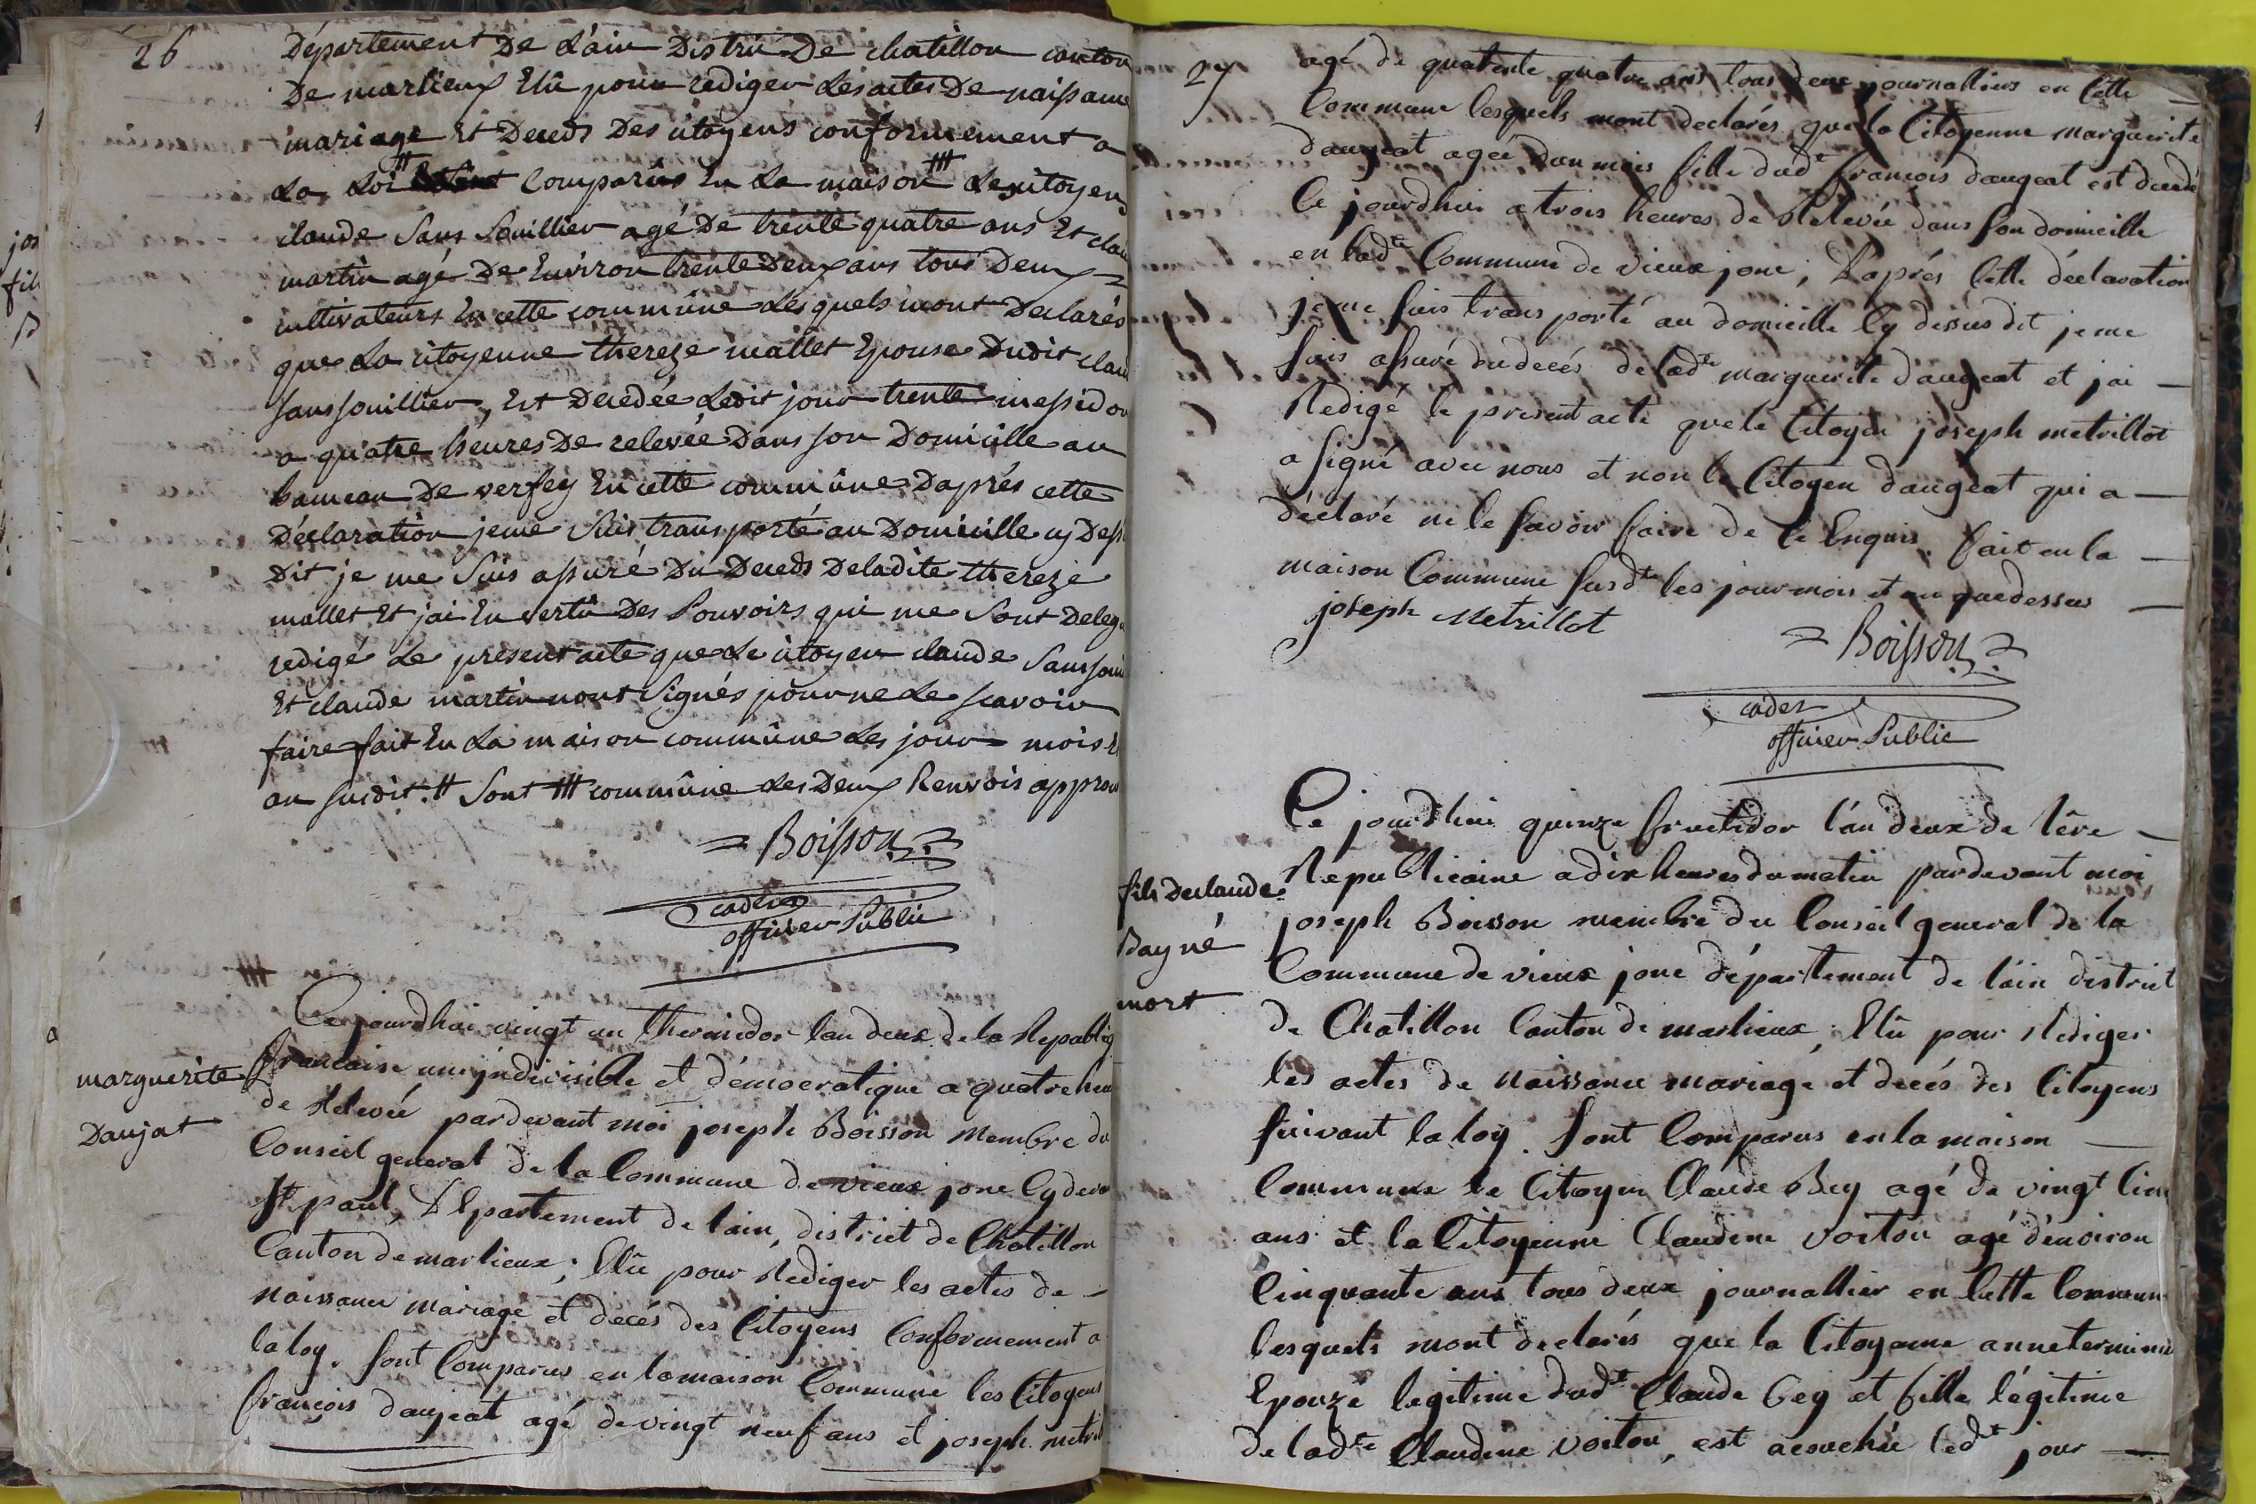 26
Département De L'ain Distric De chatillon canton
De marlieux Elû pour rediger Les actes De naissance
mariage Et Deceds Des citoyens conformement a
La Loi # comparûs En La maison ### Le citoyen
claude Sans Souillier agé De trente quatre ans Et clau
martin agé De Environ trente Deux ans tous Deux
cultivateurs En cette commûne Lesquels mont Declarés
que La citoyenne thereze mallet Epouse Dudit clau
sanssouillier, Est Decedée Ledit jour trente messidor
a quatre heures De relevée Dans son Domicille au
hameau De versey En cette commûne Daprés cette
Déclaration jeme Suis transporté au Domicille cy Dess
Dit je me Suis assuré Du Deceds Deladite thereze
mallet Et jai En vertû Des Pouvoirs qui me Sont Deleg
redigé Le present acte que Le citoyen claude Sanssoui
Et claude martin nont Signés pour ne Le scavoir
faire fait En La maison commûne Les jour mois E
an susdit. # Sont ### commûne Les Deux Renvois approu
= Boisson =
officier Public
marguerite
Daujat
Ce jourdhui vingt un thermidor lan deux de la Republiq
francaise une jndivisible et démocratique a quatre heu
de Relevée pardevant moi joseph Boisson Membre du
Conseil general de la Commune de vieux jonc Cy deva
St paul, Département de lain, district de Chatillon
Canton de marlieux; Elû pour Rediger les actes de
naissance mariage et decés des Citoyens Conformement a
la loy. sont Comparus en la maison Commune les Citoyens
francois daujeat agé de vingt neuf ans et joseph metril
27
agé de quatente quatre ans tous deux journalliers en Cette
Commune lesquels mont declarés que la Citoyenne marguerite
daugeat agée dun mois fille dudt francois daugeat est decedé
Ce jourdhui a trois heures de Relevée dans son domicille
en ladte Commune de vieux jonc; D'aprés Cette déclaration
je me suis transporté au domicille Cy dessus dit je me
suis assuré du decés de ladte marguerite daugeat et jai
Redigé le present acte que le Citoyen joseph metrillot
a signé avec nous et non le Citoyen daugeat qui a
déclaré ne le savoir faire de Ce Enquis. fait en la
maison Commune susdte les jour mois et an que dessus
joseph Metrillot
= Boisson =
officier Public
fils De claude
Bay né
mort
Ce jourdhui quinze fructidor l'an deux de l'ère
Republicaine a dix heures du matin pardevant moi
joseph Boisson membre du Conseil general de la
Commune de vieux jonc département de l'ain district
de Chatillon Canton de marlieux; Elû pour Rediger
les actes de Naissance mariage et decés des Citoyens
suivant la loy. sont Comparus en la maison
Commune le Citoyen Claude Bey agé de vingt Cinq
ans et la Citoyenne Claudine voiton agé d'environ
Cinquante ans tous deux journallier en Cette Commun
lesquels mont declarés que la Citoyenne
Epouze legitime dudt Claude Bey et fille légitime
de ladte Claudine voiton, est acouchée ledt jour